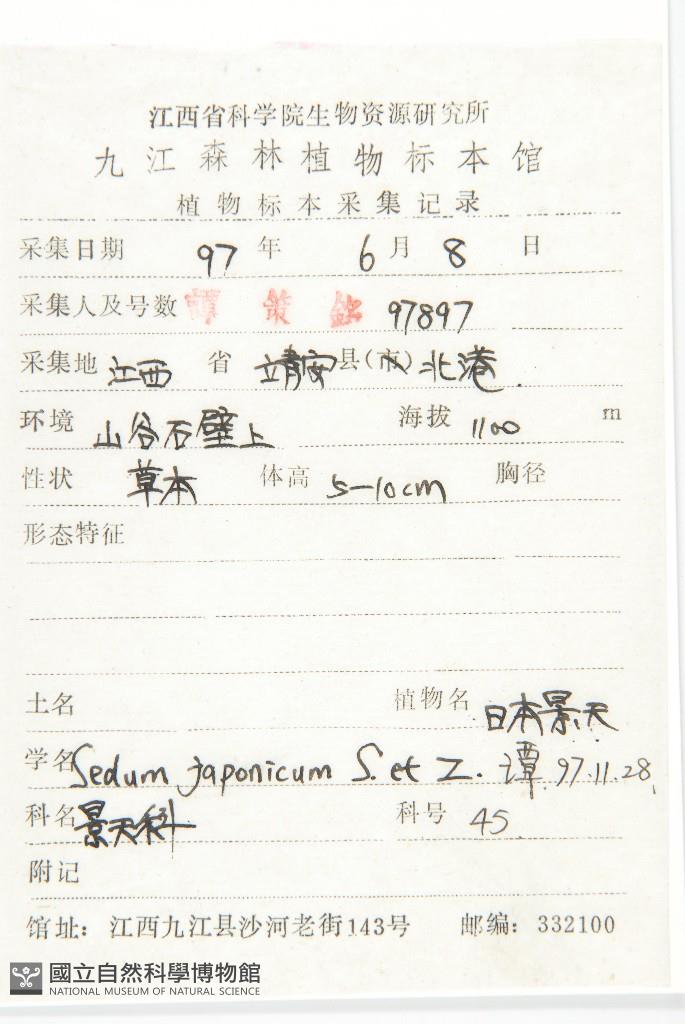 江西省科学院生物资源研究所
九江森林植物标本馆
植物标本采集记录
采集日期 97 年 6 月 8 日
采集人及号数 譚策銘 97897
采集地 江西 省 靖安 县(市) 北港.
环境 山谷石壁上 海拔 1100 m
性状 草本 体高 5-10cm 胸径
形态特征
土名 植物名 日本景天
学名 Sedum japonicum S. et Z. 谭 97.11.28
科名 景天科 科号 45
附记
馆址: 江西九江县沙河老街143号 邮编: 332100
國立自然科學博物館
NATIONAL MUSEUM OF NATURAL SCIENCE